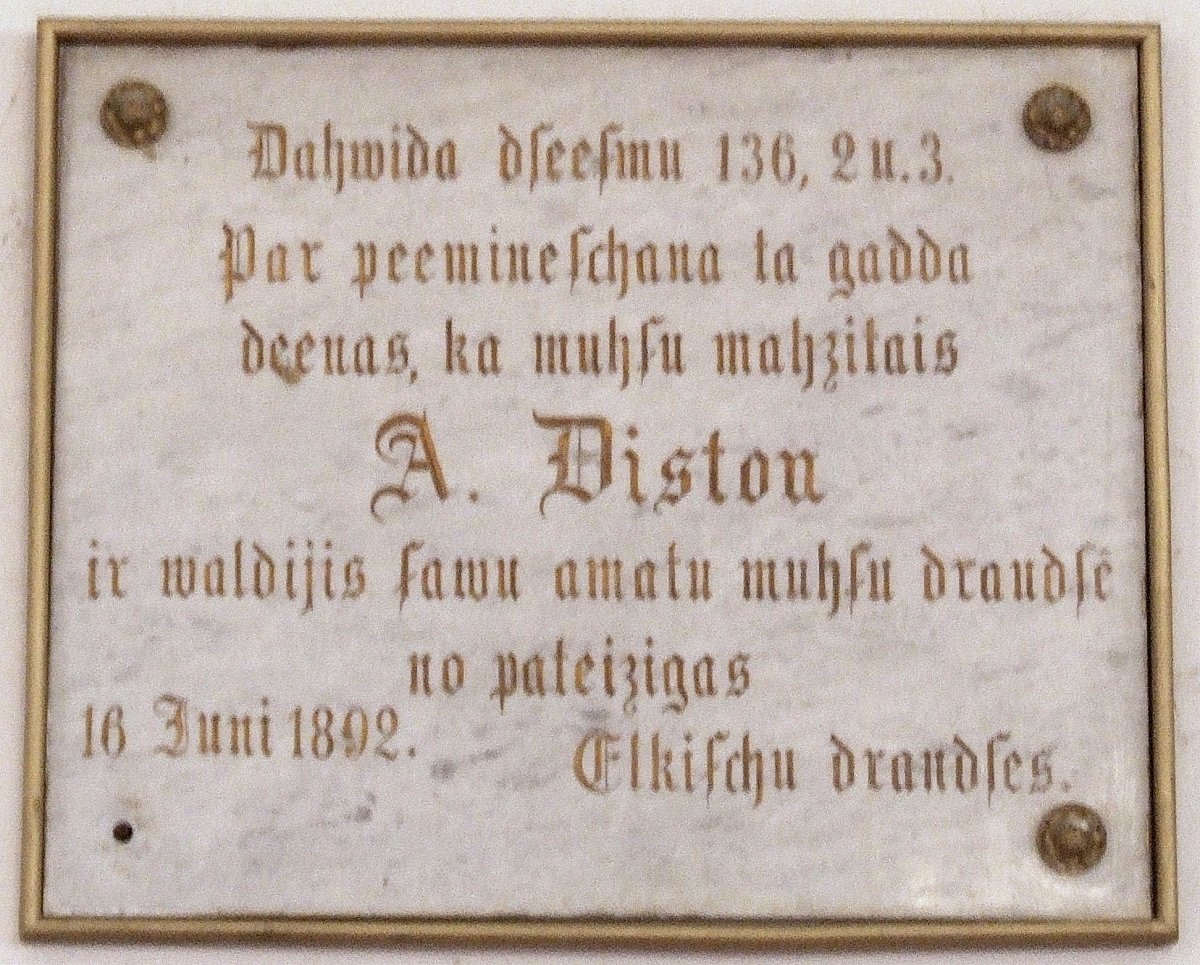 Dahwida dſeeſmu 136, 2 u. 3.
Par peemineſchana ta gadda
deenas, ka muhſu mahzitais
A. Diston
ir waldijis ſawu amatu muhſu draudſē
no pateizigas
16 Juni 1892.
Elkiſchu draudſes.